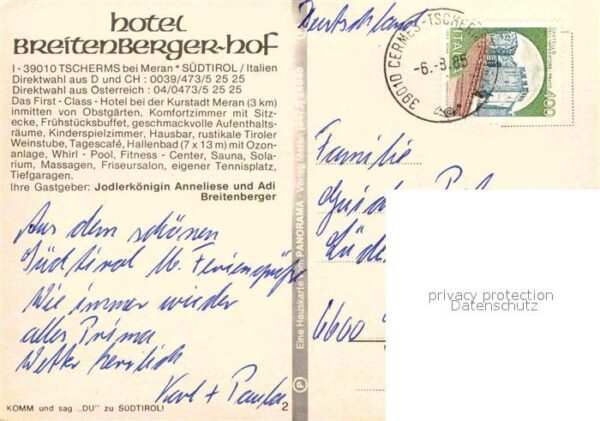 hotel
BREITENBERGER-HOF
I - 39010 TSCHERMS bei Meran * SÜDTIROL / Italien
Direktwahl aus D und CH : 0039/473/5 25 25
Direktwahl aus Österreich : 04/0473/5 25 25
Das First - Class - Hotel bei der Kurstadt Meran (3 km)
inmitten von Obstgärten, Komfortzimmer mit Sitz-
ecke, Frühstücksbuffet, geschmackvolle Aufenthalts-
räume, Kinderspielzimmer, Hausbar, rustikale Tiroler
Weinstube, Tagescafé, Hallenbad (7 x 13 m) mit Ozon-
anlage, Whirl - Pool, Fitness - Center, Sauna, Sola-
rium, Massagen, Friseursalon, eigener Tennisplatz,
Tiefgaragen.
Ihre Gastgeber: Jodlerkönigin Anneliese und Adi
Breitenberger
Aus dem schönen
Südtirol lb. Feriengrüße
Wie immer wieder
alles Prima
Wetter herrlich
Karl + Paula
KOMM und sag „DU" zu SÜDTIROL!
2
Eine Hauskarte PANORAMA - Verlag Meran
Deutschland
39010 CERMES-TSCHERMS
-6.-8.85
ITALIA
400
Familie
Guido
6600
privacy protection
Datenschutz